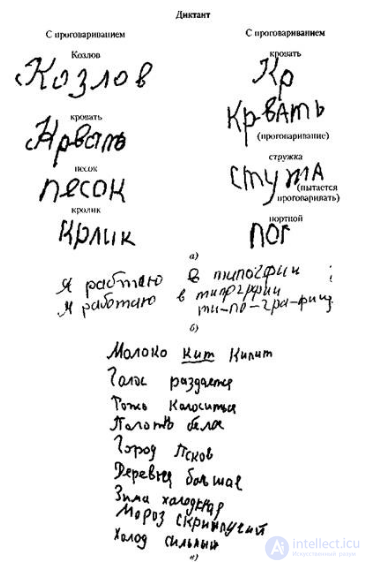 Диктант
С проговариванием
Козлов
Козлов
кровать
Крвать
песок
песок
кролик
крлик
С проговариванием
кровать
Кр
Крвать
(проговаривание)
стружка
стута
(пытается
проговаривать)
портной
пог
а)
Я работаю в типогфии
Я работаю в типгрфии
ти-по-гра-фии
б)
Молоко кит Кипит
Голос раздается
Колоситься
белое
Город Псков
Деревня
Зима холодная
Мороз
Холод сильный
в)
intellect.icu